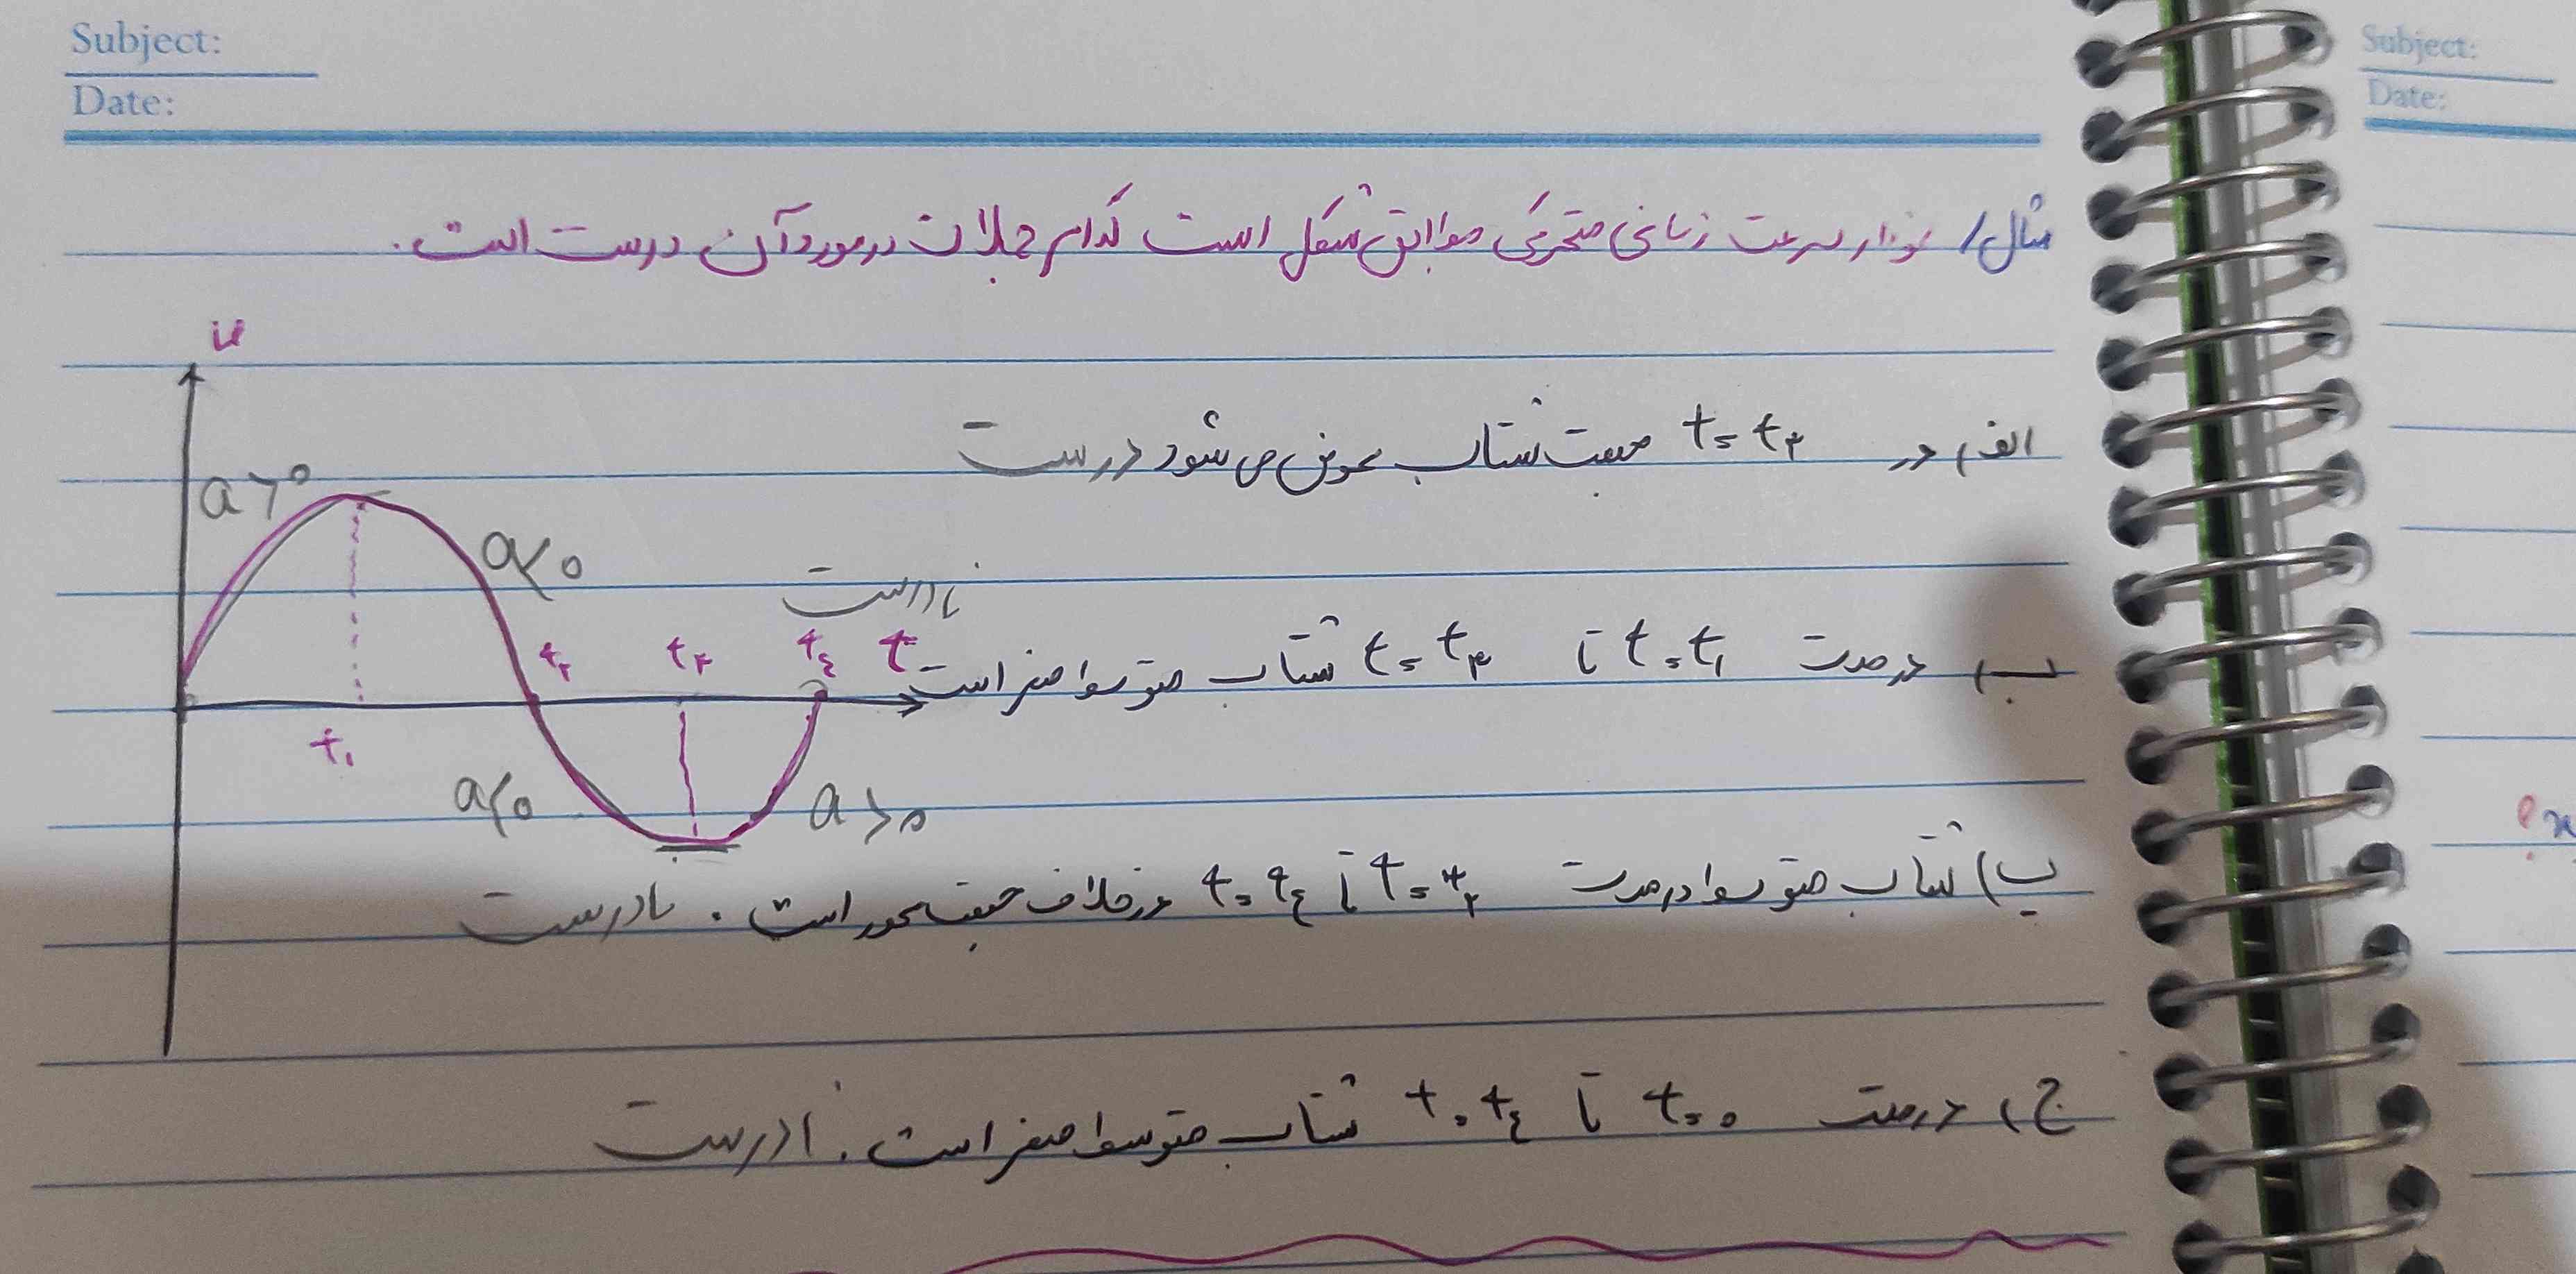 Subject:
Date:
Subject:
Date:
مثال / نمودار سرعت زمانی متحرکی مطابق شکل است کدام جملات در مورد آن درست است.
v
الف) در t = t۳ جهت شتاب عوض می شود درست
a > 0
a < 0
نادرست
ب) در مدت t = t۱ تا t = t۳ شتاب متوسط صفر است
t۲ t۳ t۴ t
t۱
a < 0
a > 0
پ) شتاب متوسط در مدت t = t۲ تا t = t۴ در خلاف جهت محور است. نادرست
ج) در مدت t = 0 تا t = t۴ شتاب متوسط صفر است. نادرست